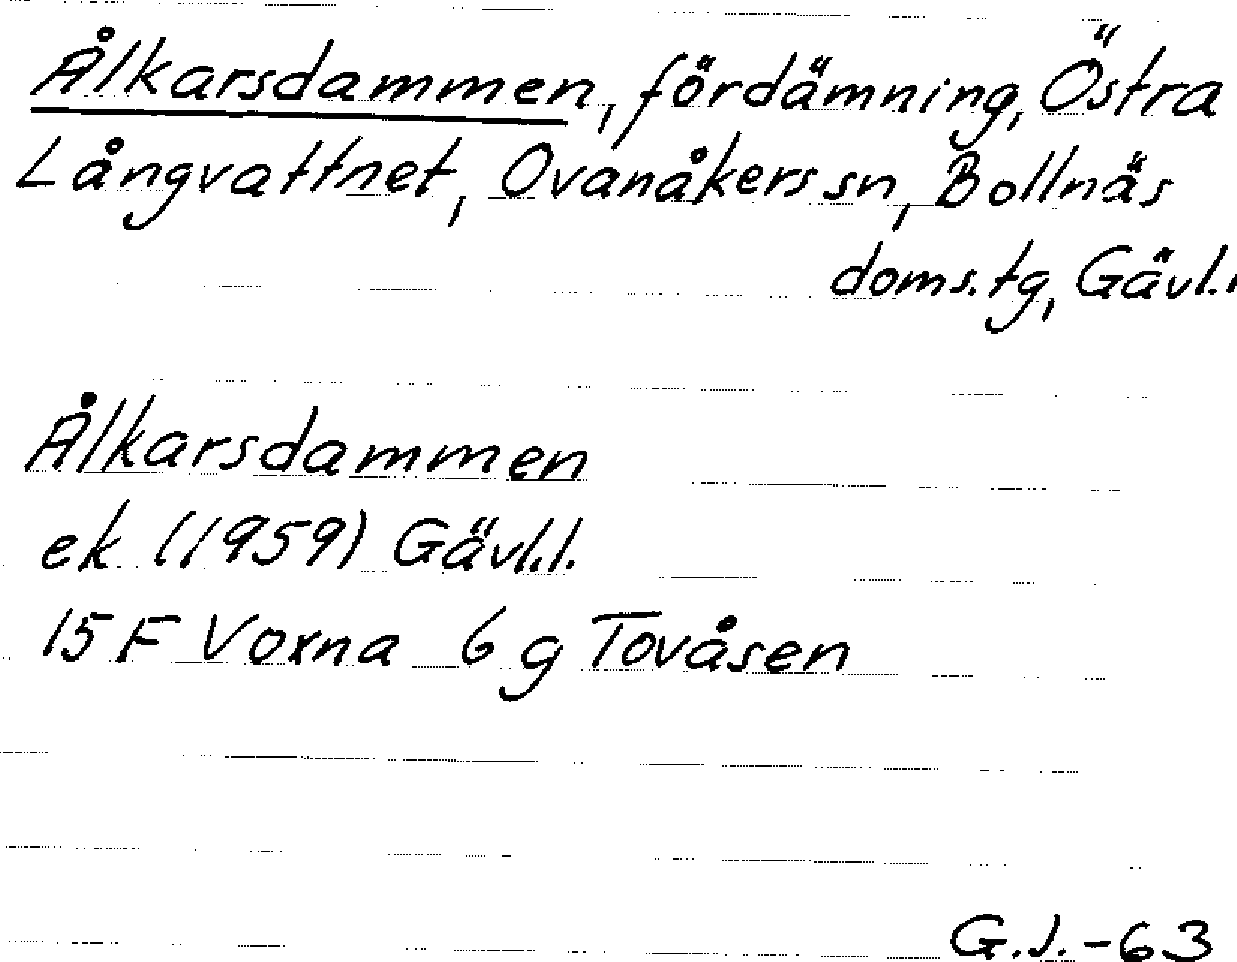 Ålkarsdammen, fördämning, Östra
Långvattnet, Ovanåkers sn, Bollnäs
doms.tg, Gävl.l
Ålkarsdammen
ek (1959) Gävl.l.
15 F Voxna 6 g Tovåsen
G.J.-63